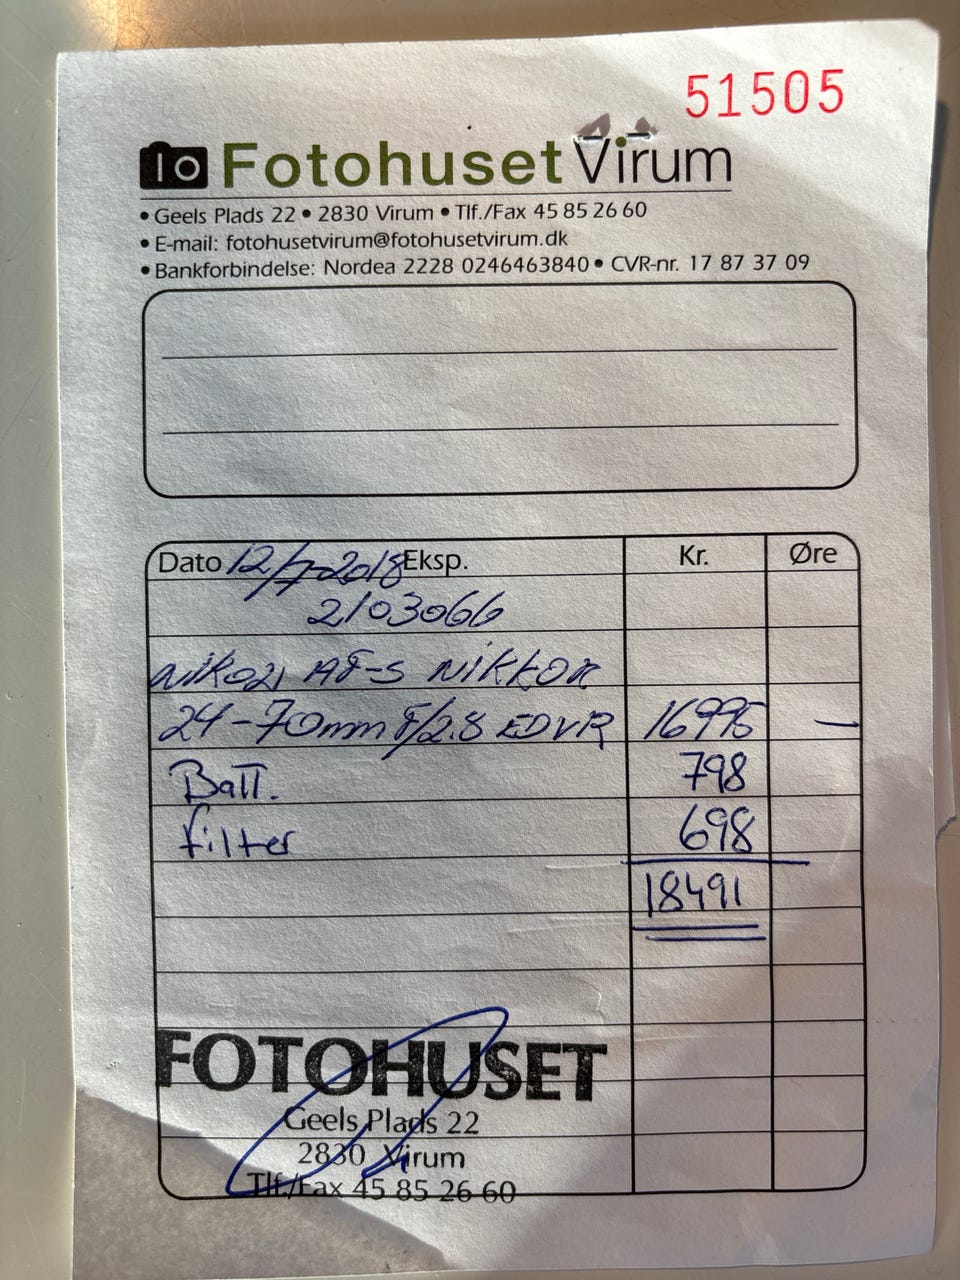 51505
Fotohuset Virum
• Geels Plads 22 • 2830 Virum • Tlf./Fax 45 85 26 60
• E-mail: fotohusetvirum@fotohusetvirum.dk
• Bankforbindelse: Nordea 2228 0246463840 • CVR-nr. 17 87 37 09
Dato 12/7-2018 Eksp. Kr. Øre
2103066
Nikon AF-S NIKKOR
24-70mm F/2.8 EDVR 16995 —
Batt. 798
filter 698
18491
FOTOHUSET
Geels Plads 22
2830 Virum
Tlf./Fax 45 85 26 60